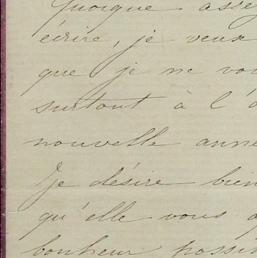 Quoique asse
écrire, je veux
que je ne vou
surtout à l'o
nouvelle anné
Je désire bien
qu'elle vous a
bonheur possi